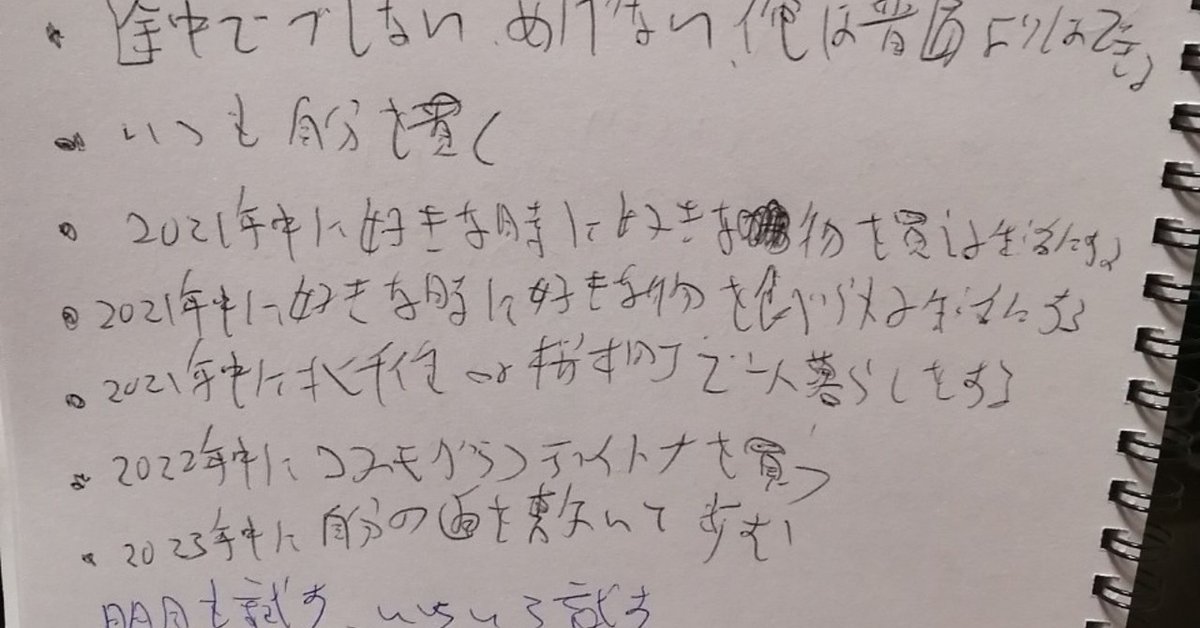 ・途中でしない めげない 俺は昔より
・いつも自分を置く
・2021年中に好きな時に好きな物を買える生活にする
・2021年中に好きな時に好きな物を食べられる生活にする
・2021年中に北千住 or 桜木町で一人暮らしをする
・2022年中にコスモグラフデイトナを買う
・2023年中に自分の道を築いて歩む
明日も試す いろいろ試す